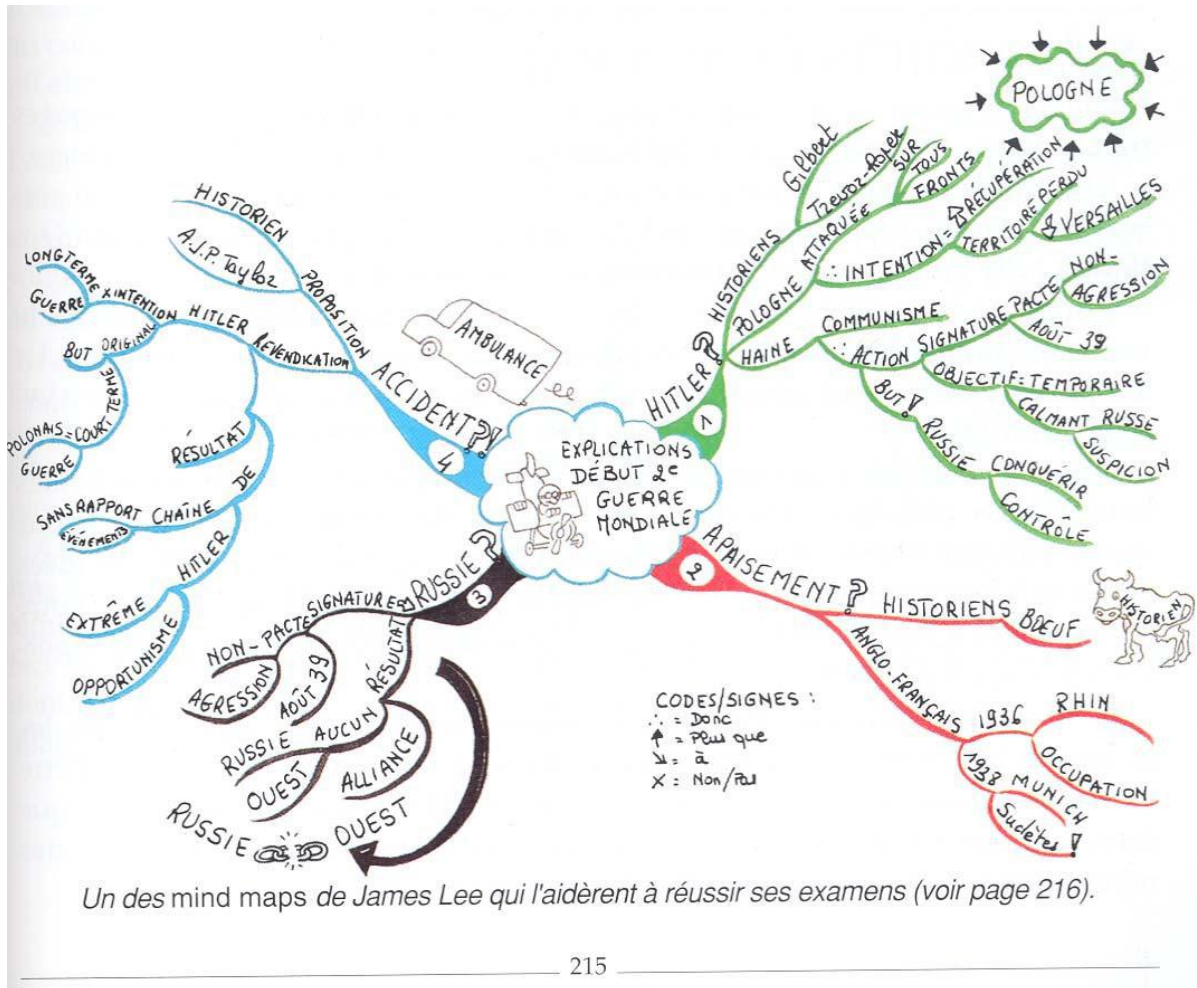 EXPLICATIONS
DÉBUT 2e
GUERRE
MONDIALE
HITLER?
1
HISTORIENS
Gilbert
Trevor-Roper
POLOGNE ATTAQUÉE
SUR
TOUS
FRONTS
POLOGNE
∴ INTENTION =
RÉCUPÉRATION
TERRITOIRE PERDU
VERSAILLES
HAINE
COMMUNISME
∴ ACTION
SIGNATURE PACTE
NON-
AGRESSION
AOÛT 39
OBJECTIF = TEMPORAIRE
CALMANT RUSSE
SUSPICION
BUT!
RUSSIE
CONQUÉRIR
CONTRÔLE
APAISEMENT?
2
HISTORIENS
BOEUF
HISTORIEN
ANGLO-FRANÇAIS
1936
RHIN
OCCUPATION
1938 MUNICH
Sudètes!
RUSSIE?
3
SIGNATURE
NON-PACTE
AGRESSION
AOÛT 39
RÉSULTAT
AUCUN
RUSSIE
OUEST
ALLIANCE
RUSSIE
OUEST
ACCIDENT?!
4
AMBULANCE
PROPOSITION
HISTORIEN
A.J.P. Taylor
REVENDICATION
HITLER
X INTENTION
LONG TERME
GUERRE
ORIGINAL
BUT
COURT TERME
POLONAIS =
GUERRE
RÉSULTAT
DE
CHAÎNE
SANS RAPPORT
ÉVÉNEMENTS
HITLER
EXTRÊME
OPPORTUNISME
CODES/SIGNES :
∴ = Donc
↑ = Plus que
↘ = à
X = Non/Pas
Un des mind maps de James Lee qui l'aidèrent à réussir ses examens (voir page 216).
215